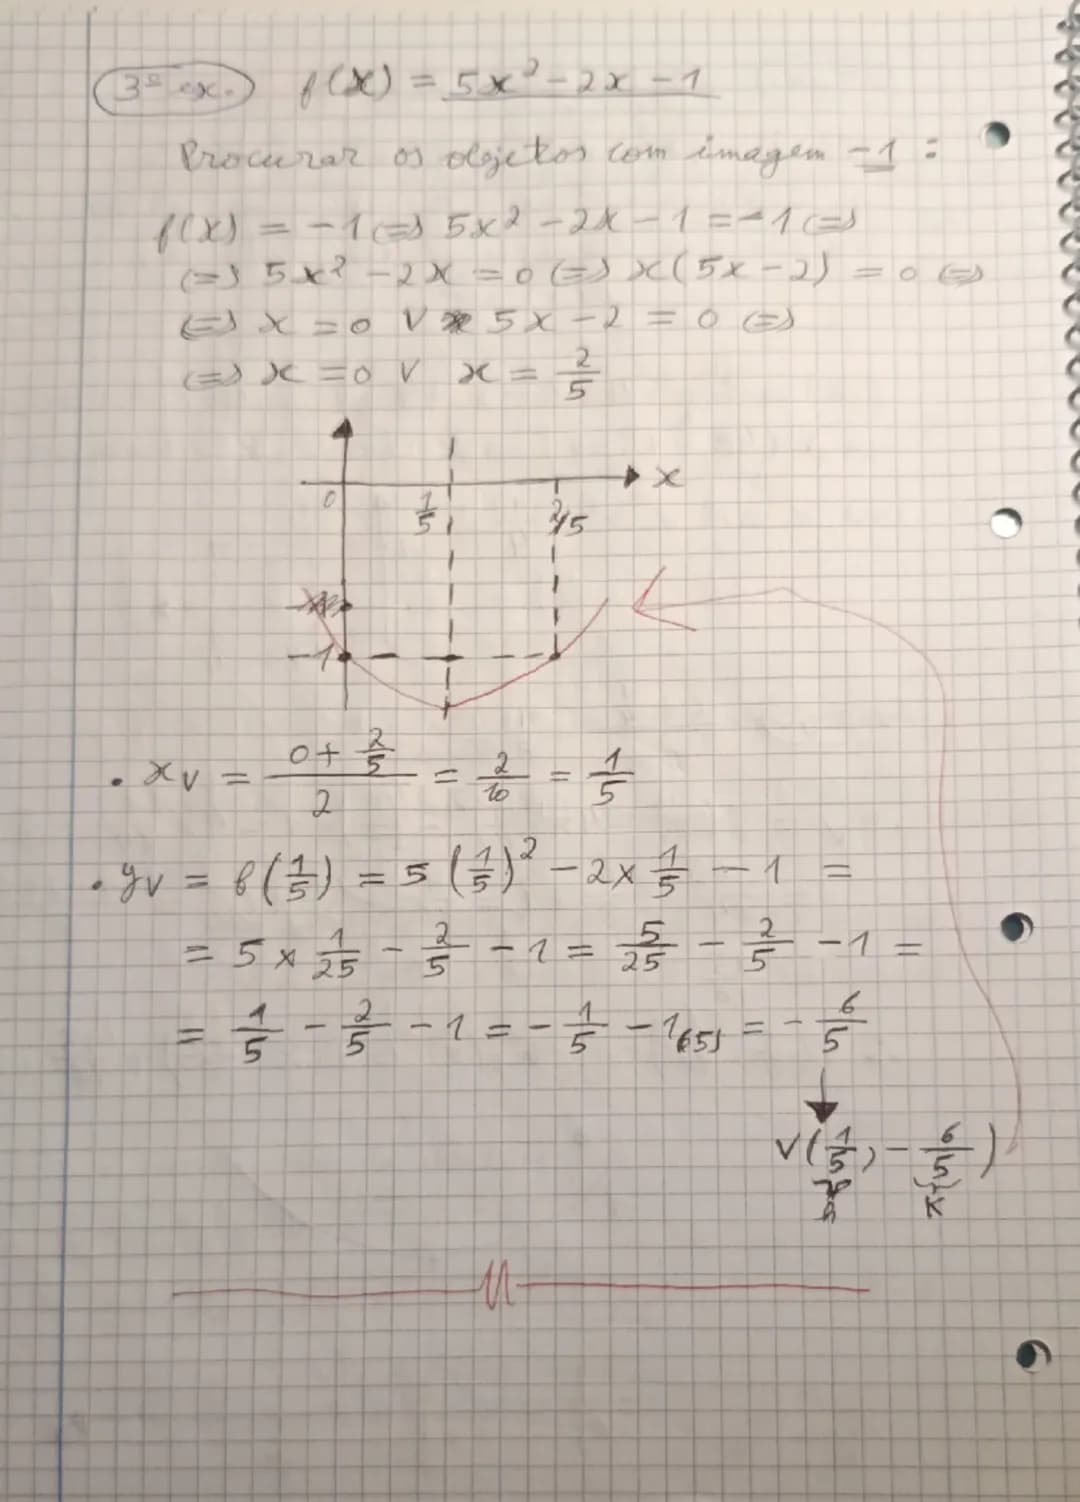 3º ex. f(x) = 5x² - 2x - 1
Procurar os objetos com imagem -1 :
f(x) = -1 (=) 5x² - 2x - 1 = -1 (=)
(=) 5x² - 2x = 0 (=) x(5x - 2) = 0 (=)
(=) x = 0 V 5x - 2 = 0 (=)
(=) x = 0 V x = 2/5
x
0 1/5 2/5
-1
• xv = (0 + 2/5)/2 = 2/10 = 1/5
• yv = f(1/5) = 5(1/5)² - 2 x 1/5 - 1 =
= 5 x 1/25 - 2/5 - 1 = 5/25 - 2/5 - 1 =
= 1/5 - 2/5 - 1 = - 1/5 - 1(5) = - 6/5
V(1/5, - 6/5)
K